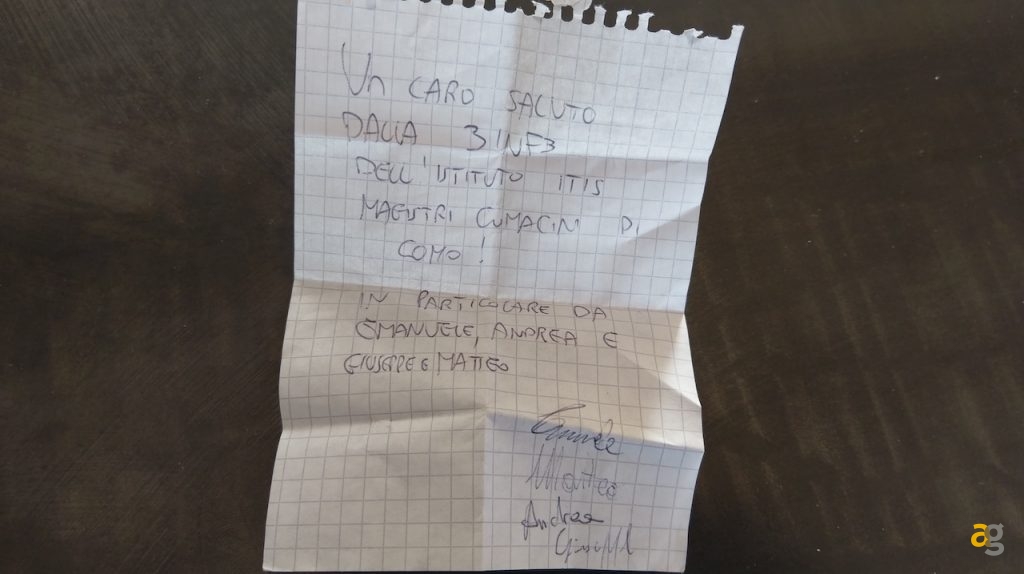 Un CARO SALUTO
DALLA 3 INF3
DELL'ISTITUTO ITIS
MAGISTRI CUMACINI DI
COMO!
IN PARTICOLARE DA
EMANUELE, ANDREA E
GIUSEPPE E MATTEO
Matteo
Andrea
ag